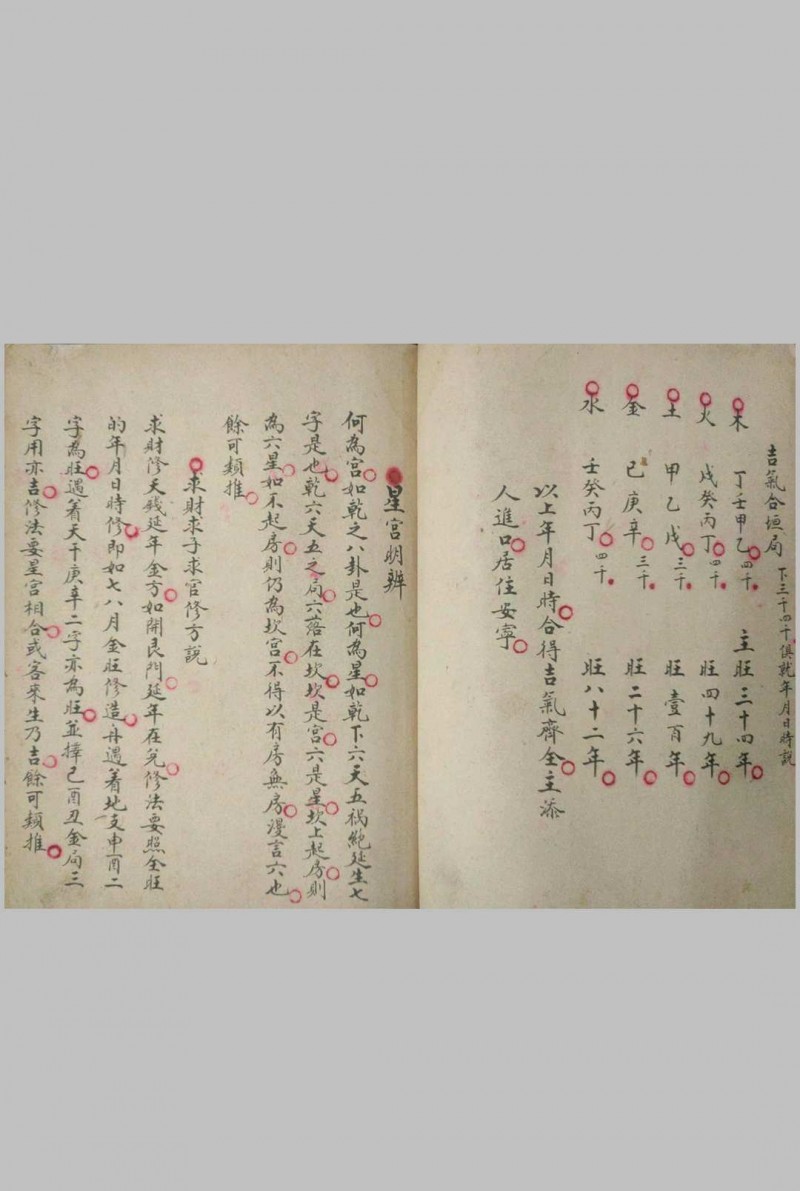 吉氣合垣局 下三干四干俱就年月日時説
木 丁壬甲乙四干 主旺三十四年
火 戊癸丙丁四干 旺四十九年
土 甲乙戊三干 旺壹百年
金 己庚辛三干 旺二十六年
水 壬癸丙丁四干 旺八十二年
以上年月日時合得吉氣齊全主添
人進口居住安寧
星宮明辨
何為宮如乾之八卦是也何為星如乾下六天五禍絶延生七
字是也乾六天五之局六落在坎坎是宮六是星坎上起房則
為六星如不起房則仍為坎宮不得以有房無房漫言六也
餘可類推
求財求子求官修方説
求財修天錢延年金方如開艮門延年在兌修法要照金旺
的年月日時修即如七八月金旺修造再遇着地支申酉二
字為旺遇着天干庚辛二字亦為旺並擇巳酉丑金局三
字用亦吉修法要星宮相合或客來生乃吉餘可類推